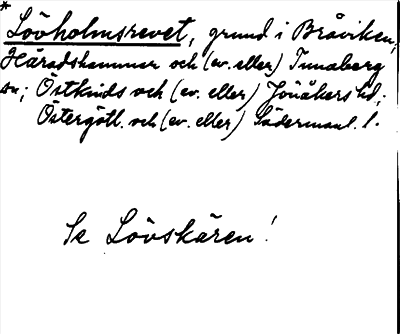 *
Lövholmsrevet, grund i Bråviken,
Häradshammar och (ev. eller) Tunaberg
sn; Östkinds och (ev. eller) Jönåkers hd;
Östergötl. och (ev. eller) Södermanl. l.
Se Lövskären!